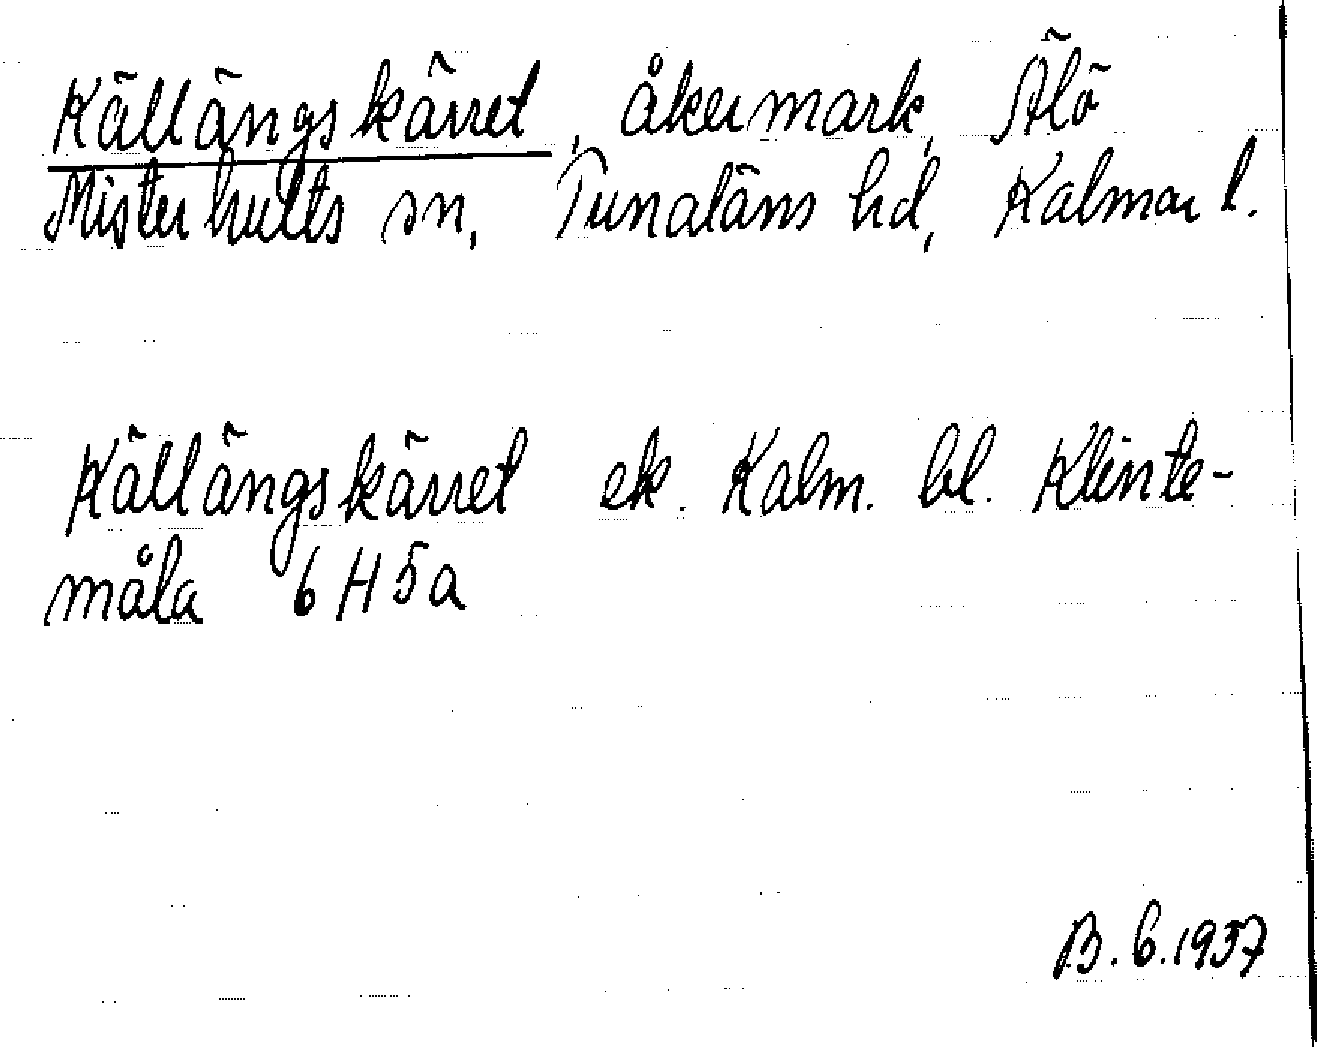 Källängskärret, åkermark, Älö
Misterhults sn, Tunaläns hd, Kalmar l.
Källängskärret ek. Kalm. bl. Klinte-
måla 6H5a
B.6.1937